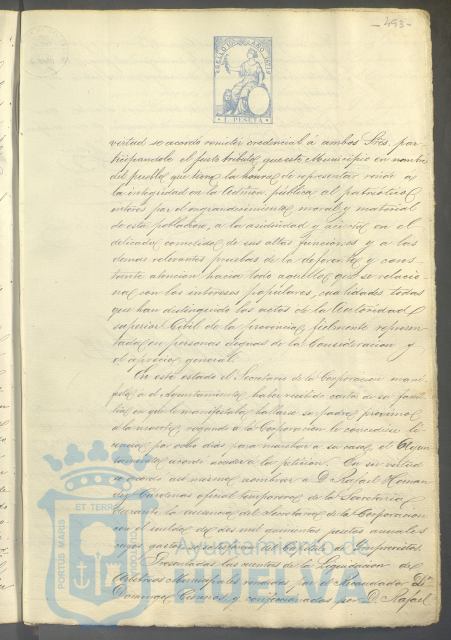 -493-
SELLO 11º AÑO 1879
1 PESETA
vertud se acordó remitir credencial á ambos Sres. par-
ticipandole el justo tributo que este Municipio en nombre
del pueblo que tiene la honra de representar rinde á
la integridad en la Admon pública al patriotico
interes por el engrandecimiento moral y material
de esta poblacion, a la asiduidad y acierto en el
delicado cometido de sus altas funciones y a las
demas relevantes pruebas de la deferente y cons-
tante atencion hacia todo aquello que se relacio-
na con los intereses populares, cualidades todas
que han distinguido los actos de la Autoridad
superior Civil de la provincia, fielmente represen-
tada en personas dignas de la Consideracion y
el aprecio general.
En este estado el Secretario de la Corporacion mani-
festó al Ayuntamiento haber recibido carta de su fami-
lia en que le manifestaba hallarse su padre proximo
a la muerte, rogando a la Corporacion le concediese li-
cencia por ocho dias para marchar a su casa, el Ayun-
tamiento acordó acceder a la peticion. En su virtud
se acordó asi mismo nombrar a D. Rafael Hernan-
dez Cardenas oficial temporero de la Secretaria
durante la ausencia del Secretario de la Corporacion
con el sueldo de dos mil quinientas pesetas anuales
cuyo gasto se del Capitulo de Imprevistos
Presentadas las cuentas de la Liquidacion de
Arbitrios Municipales rendidas por el Recaudador Dn
Domingo Cisneros y confeccionadas por D. Rafael
Ayuntamiento de
HUELVA
PORTUS MARIS
ET TERRAE
CUSTODIA